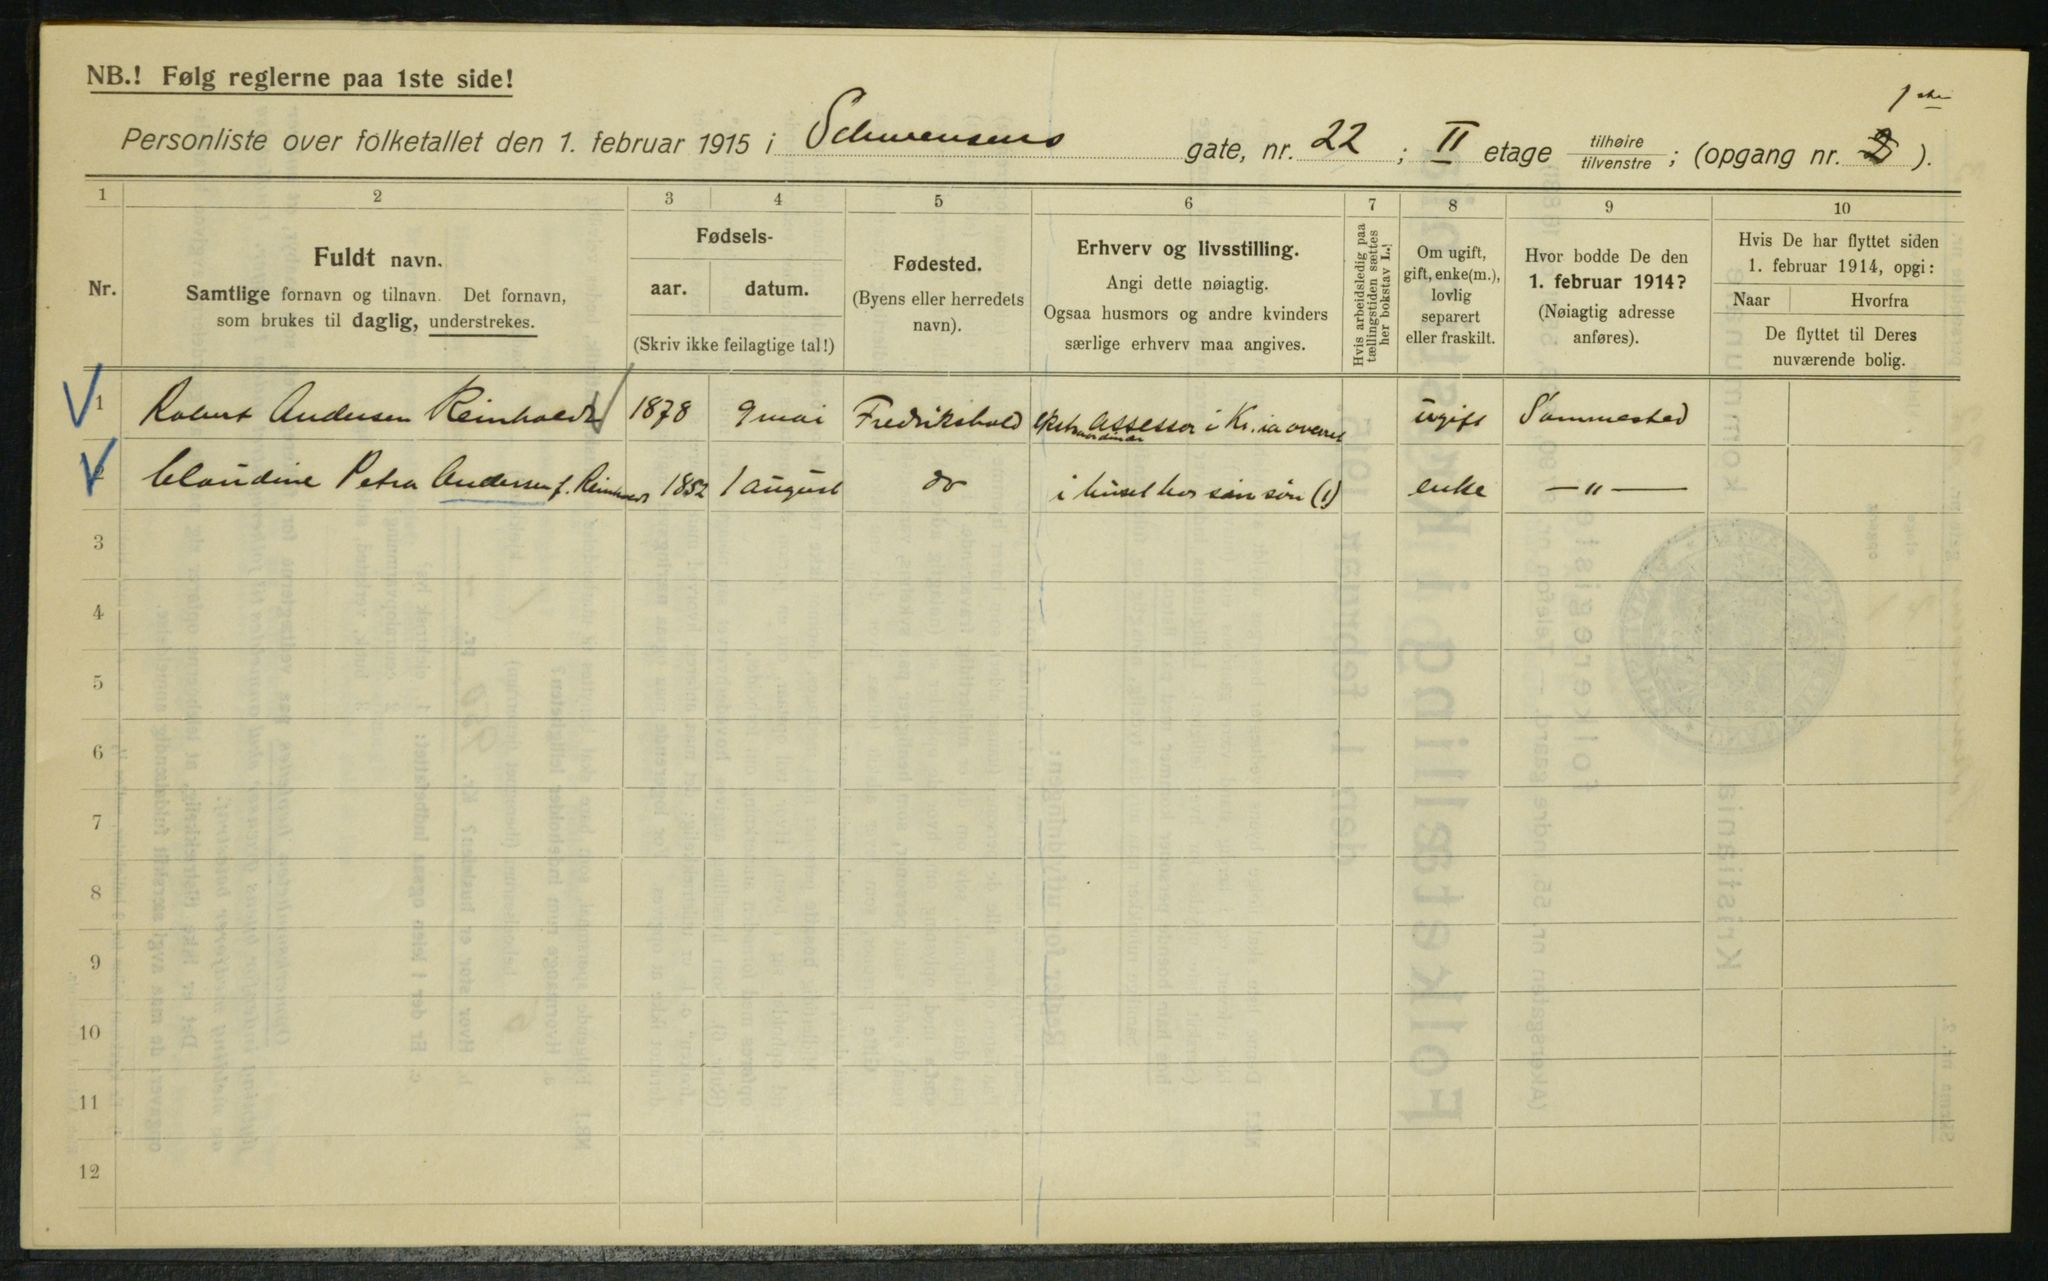 NB.! Følg reglerne paa 1ste side!
1ste
Personliste over folketallet den 1. februar 1915 i Schwensens gate, nr. 22 ; II etage tilhøire/tilvenstre ; (opgang nr. 2 ).
1 2 3 4 5 6 7 8 9 10
Nr.
Fuldt navn.
Samtlige fornavn og tilnavn. Det fornavn,
som brukes til daglig, understrekes.
Fødsels-
aar. datum.
(Skriv ikke feilagtige tal!)
Fødested.
(Byens eller herredets
navn).
Erhverv og livsstilling.
Angi dette nøiagtig.
Ogsaa husmors og andre kvinders
særlige erhverv maa angives.
Hvis arbeidsledig paa
tællingstiden sættes
her bokstav L.!
Om ugift,
gift, enke(m.),
lovlig
separert
eller fraskilt.
Hvor bodde De den
1. februar 1914?
(Nøiagtig adresse
anføres).
Hvis De har flyttet siden
1. februar 1914, opgi:
Naar Hvorfra
De flyttet til Deres
nuværende bolig.
1 Robert Andersen Reinholdt 1878 9 mai Fredrikshald ekstraordinær Assessor i Kr.ia overret ugift Sammested
2 Claudine Petra Andersen f. Reinholdt 1852 1 august do i huset hos sin søn (1) enke — " —
3
4
5
6
7
8
9
10
11
12